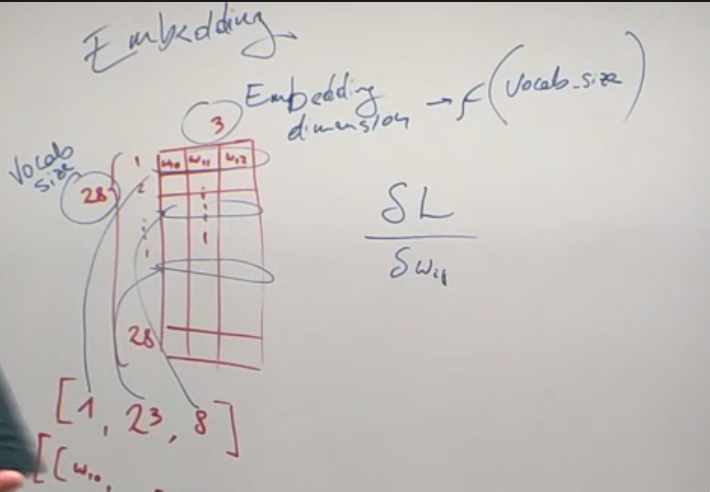 Embedding
3
Embedding
dimension → f(vocab_size)
Vocab
size
28
1 w₁₀ w₁₁ w₁₂
2
28
δL
δw₁₁
[1, 23, 8]
[[w₁₀,